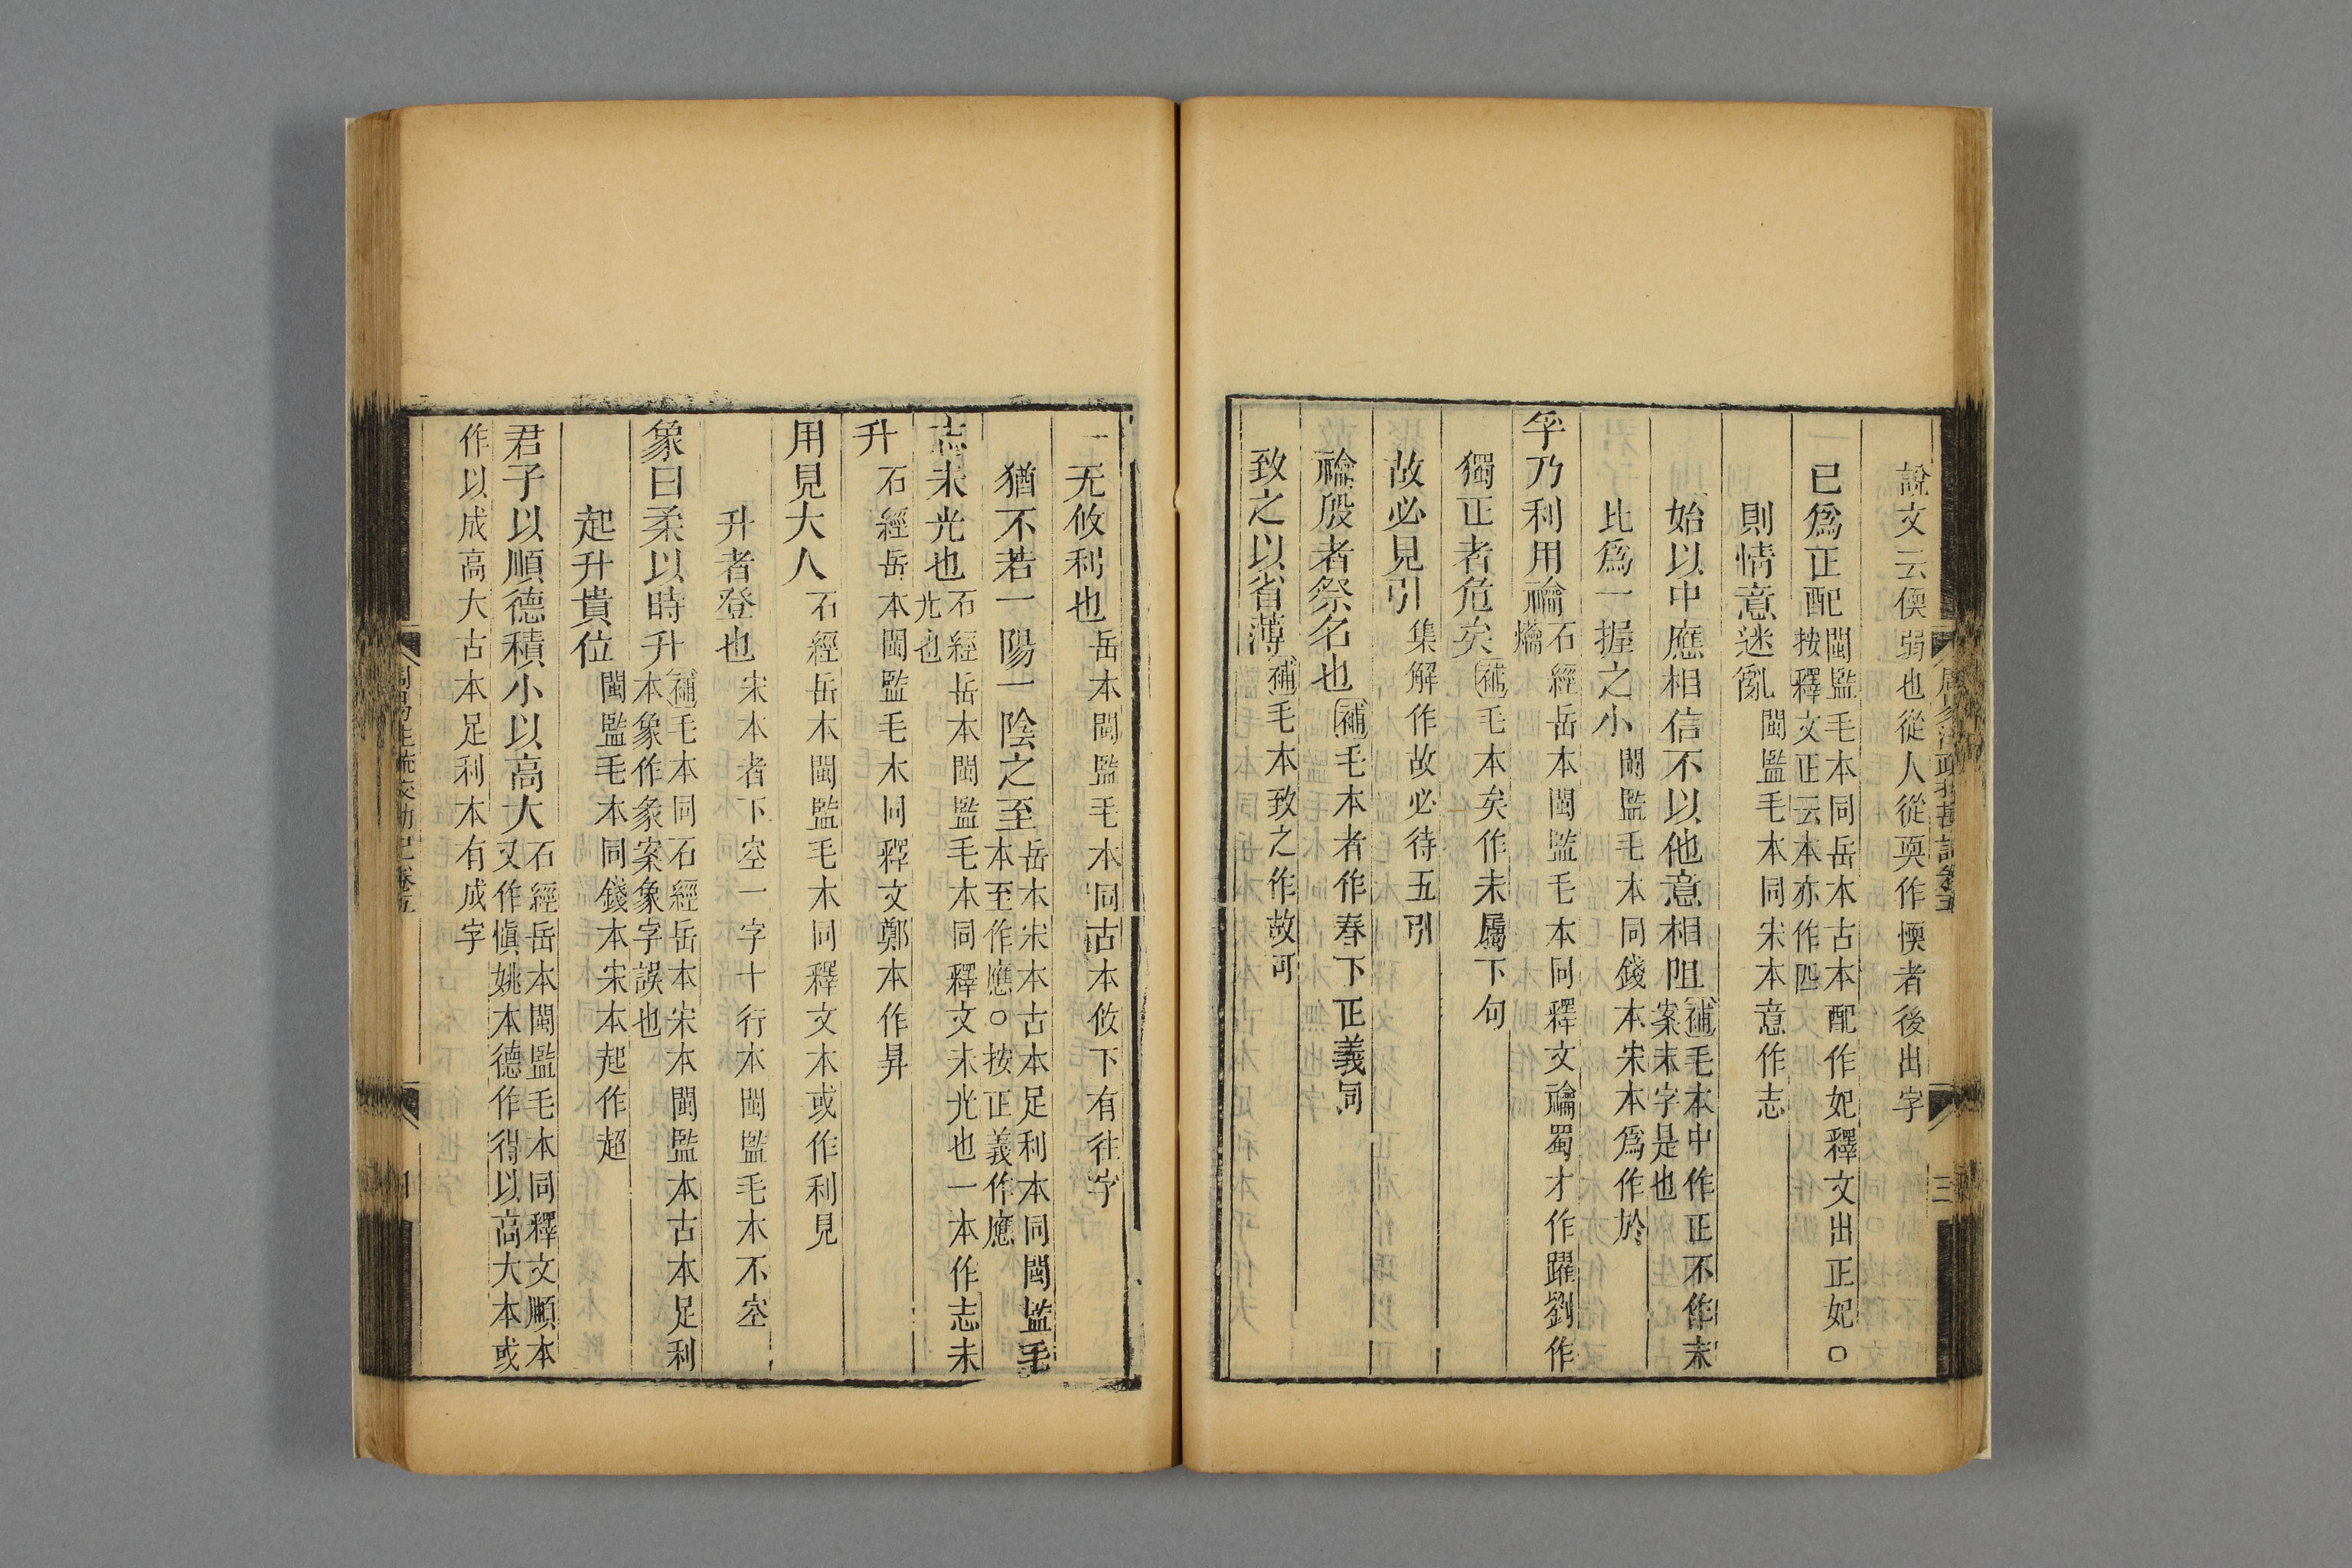 說文云偄弱也從人從耎作愞者後出字
已爲正配閩監毛本同岳本古本配作妃釋文出正妃○按釋文正云本亦作匹
則情意迷亂閩監毛本同宋本意作志
始以中應相信不以他意相阻補毛本中作正不作末案末字是也
比爲一握之小閩監毛本同錢本宋本爲作於
孚乃利用禴石經岳本閩監毛本同釋文禴蜀才作躍劉作爚
獨正者危矣補毛本矣作未屬下句
故必見引集解作故必待五引
禴殷者祭名也補毛本者作春下正義同
致之以省薄補毛本致之作故可
三
一无攸利也岳本閩監毛本同古本攸下有往字
猶不若一陽一陰之至岳本宋本古本足利本同閩監毛本至作應○按正義作應
志未光也石經岳本閩監毛本同釋文未光也一本作志未光也
升石經岳本閩監毛本同釋文鄭本作昇
用見大人石經岳本閩監毛本同釋文本或作利見
升者登也宋本者下空一字十行本閩監毛本不空
象曰柔以時升補毛本同石經岳本宋本閩監本古本足利本象作彖案象字誤也
起升貴位閩監毛本同錢本宋本起作超
君子以順德積小以高大石經岳本閩監毛本同釋文順本又作慎姚本德作得以高大本或
作以成高大古本足利本有成字